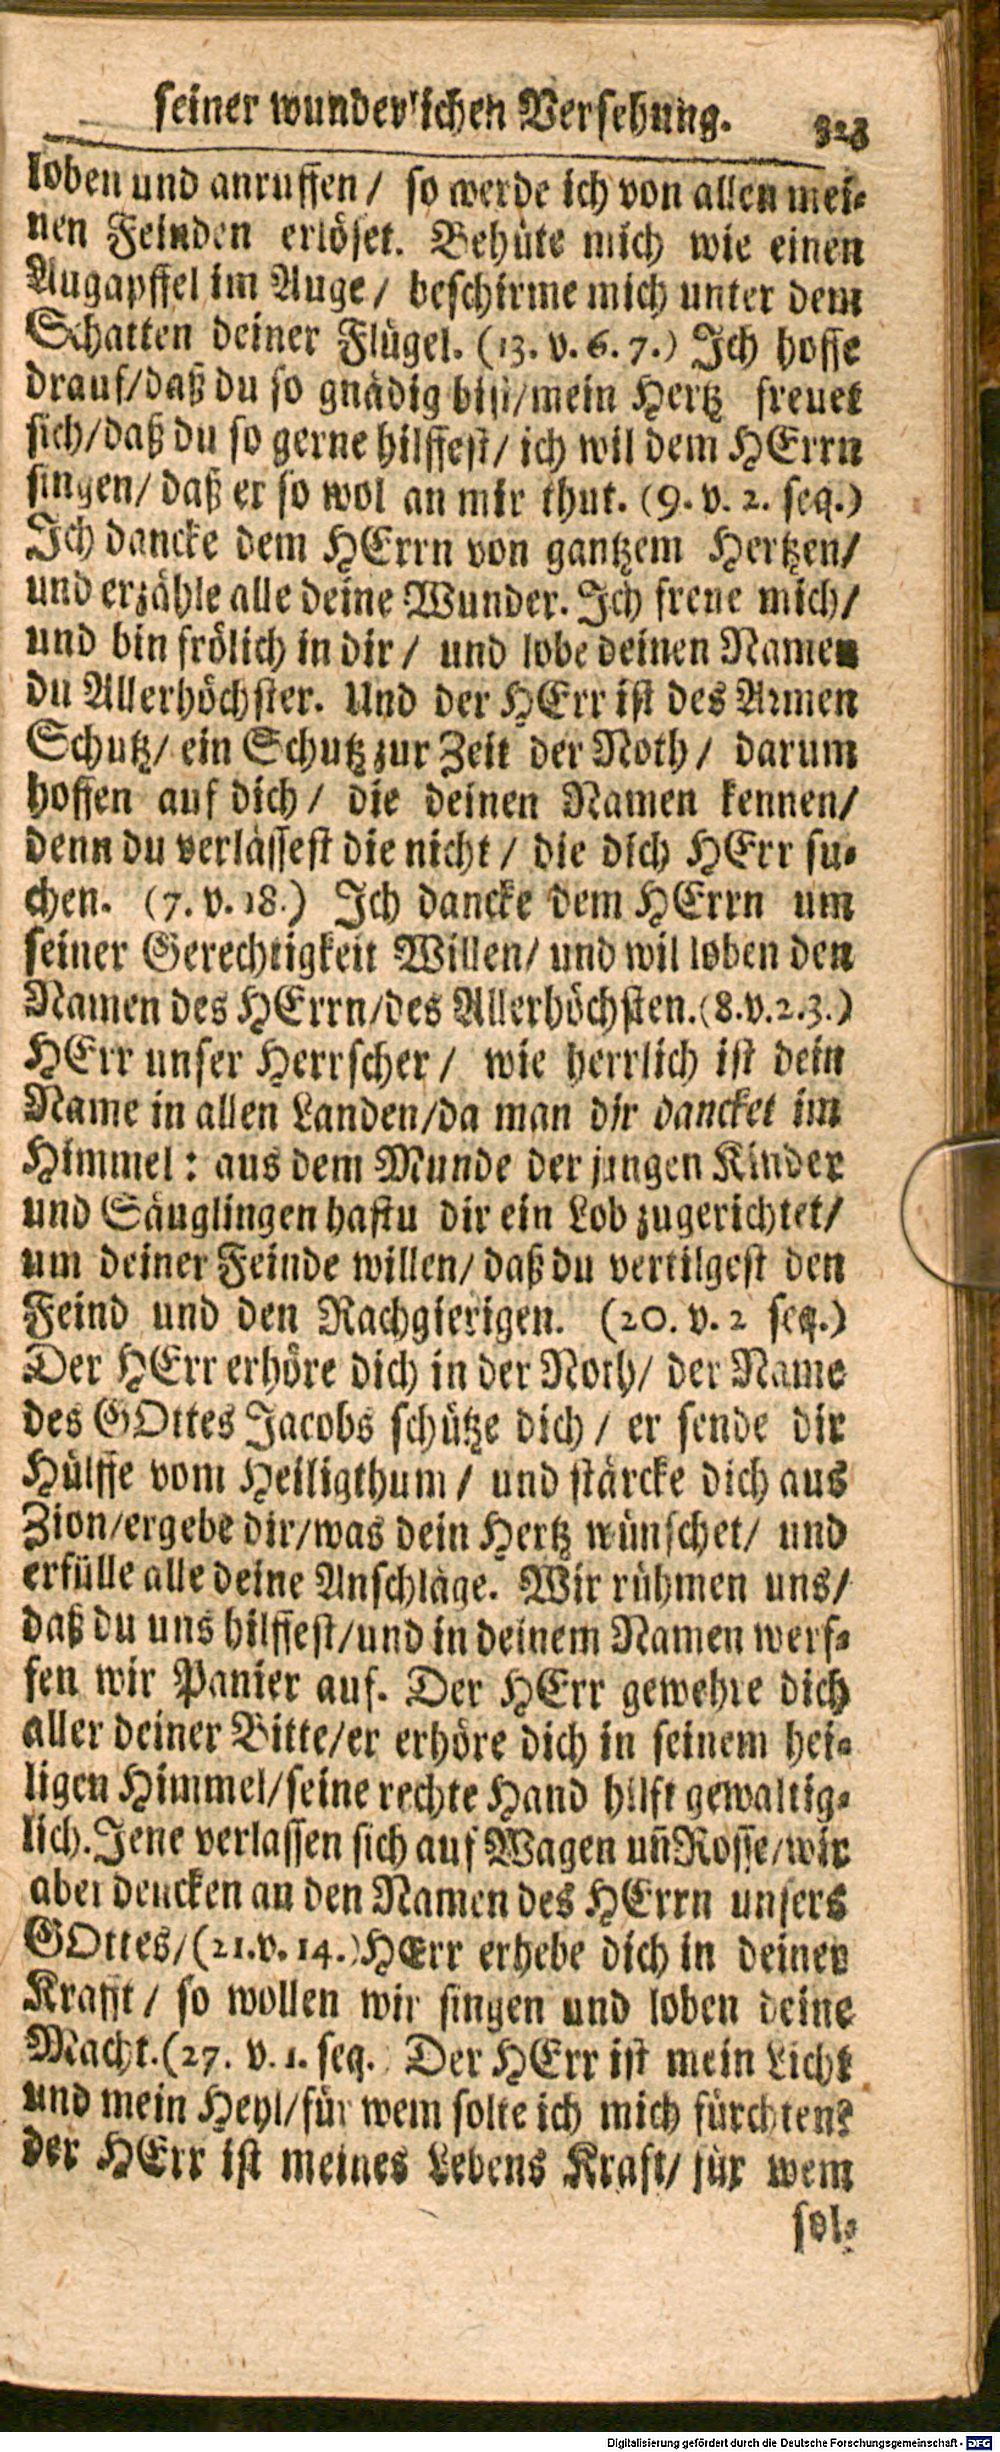 seiner wunderlichen Versehung. 323
loben und anruffen / so werde ich von allen mei-
nen Feinden erlöset. Behüte mich wie einen
Augapffel im Auge / beschirme mich unter dem
Schatten deiner Flügel. (13. v. 6. 7.) Ich hoffe
drauf/daß du so gnädig bist/mein Hertz freuet
sich/daß du so gerne hilffest/ ich wil dem HErrn
singen/ daß er so wol an mir thut. (9. v. 2. seq.)
Ich dancke dem HErrn von gantzem Hertzen/
und erzähle alle deine Wunder. Ich freue mich/
und bin frölich in dir / und lobe deinen Namen
du Allerhöchster. Und der HErr ist des Armen
Schutz/ ein Schutz zur Zeit der Noth / darum
hoffen auf dich / die deinen Namen kennen/
denn du verlässest die nicht / die dich HErr su-
chen. (7. v. 18.) Ich dancke dem HErrn um
seiner Gerechtigkeit Willen/ und wil loben den
Namen des HErrn/des Allerhöchsten.(8.v.2.3.)
HErr unser Herrscher / wie herrlich ist dein
Name in allen Landen/da man dir dancket im
Himmel: aus dem Munde der jungen Kinder
und Säuglingen hastu dir ein Lob zugerichtet/
um deiner Feinde willen/ daß du vertilgest den
Feind und den Rachgierigen. (20. v. 2 seq.)
Der HErr erhöre dich in der Noth/ der Name
des GOttes Jacobs schütze dich / er sende dir
Hülffe vom Heiligthum / und stärcke dich aus
Zion/ergebe dir/was dein Hertz wünschet/ und
erfülle alle deine Anschläge. Wir rühmen uns/
daß du uns hilffest/und in deinem Namen werf-
fen wir Panier auf. Der HErr gewehre dich
aller deiner Bitte/er erhöre dich in seinem hei-
ligen Himmel/seine rechte Hand hilft gewaltig-
lich. Jene verlassen sich auf Wagen uñ Rosse/wir
aber dencken an den Namen des HErrn unsers
GOttes/(21.v. 14.) HErr erhebe dich in deiner
Krafft / so wollen wir singen und loben deine
Macht.(27. v. 1. seq. Der HErr ist mein Licht
und mein Heyl/für wem solte ich mich fürchten?
der HErr ist meines Lebens Kraft/ für wem
sol-
Digitalisierung gefördert durch die Deutsche Forschungsgemeinschaft - DFG